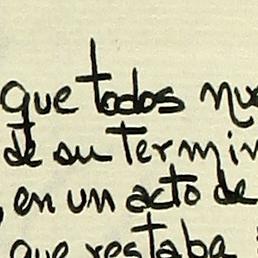 que todos nue
de su termin
, en un acto de
que restaba